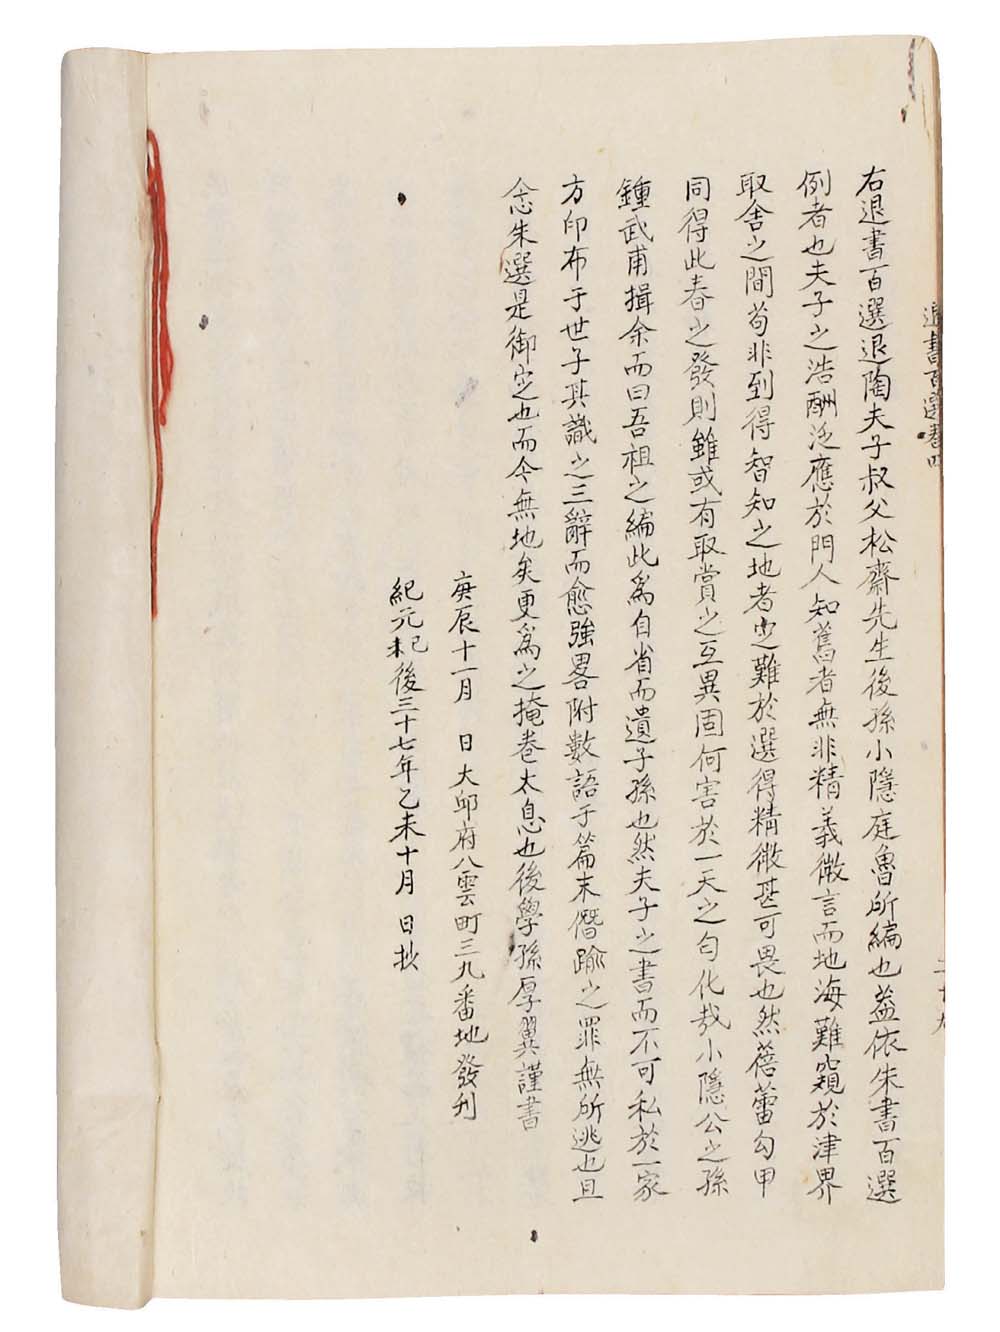 退書百選卷四
二十九
右退書百選退陶夫子叔父松齋先生後孫小隱庭魯所編也盖依朱書百選
例者也夫子之浩酬泛應於門人知舊者無非精義微言而地海難窺於津界
取舍之間苟非到得智知之地者宲難於選得精微甚可畏也然蓓蕾勾甲
同得此春之發則雖或有取賞之互異固何害於一天之匀化㦲小隱公之孫
鍾武甫揖余而曰吾祖之編此爲自省而遺子孫也然夫子之書而不可私於一家
方印布于世子其識之三辭而愈強畧附数語于篇末僭踰之罪無所逃也且
念朱選是御定也而今無地矣更爲之掩卷太息也後學孫厚翼謹書
庚辰十一月 日大邱府八雲町三九番地發刋
紀元 後三十七年乙未十月 日抄